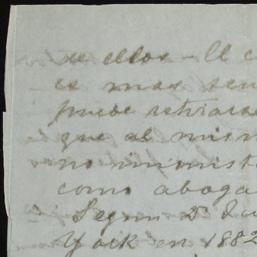 de ellos - El c
es mas sen
puede retrasa
que al mism
no suminist
como aboga
Segun D. Ju
York en 1882